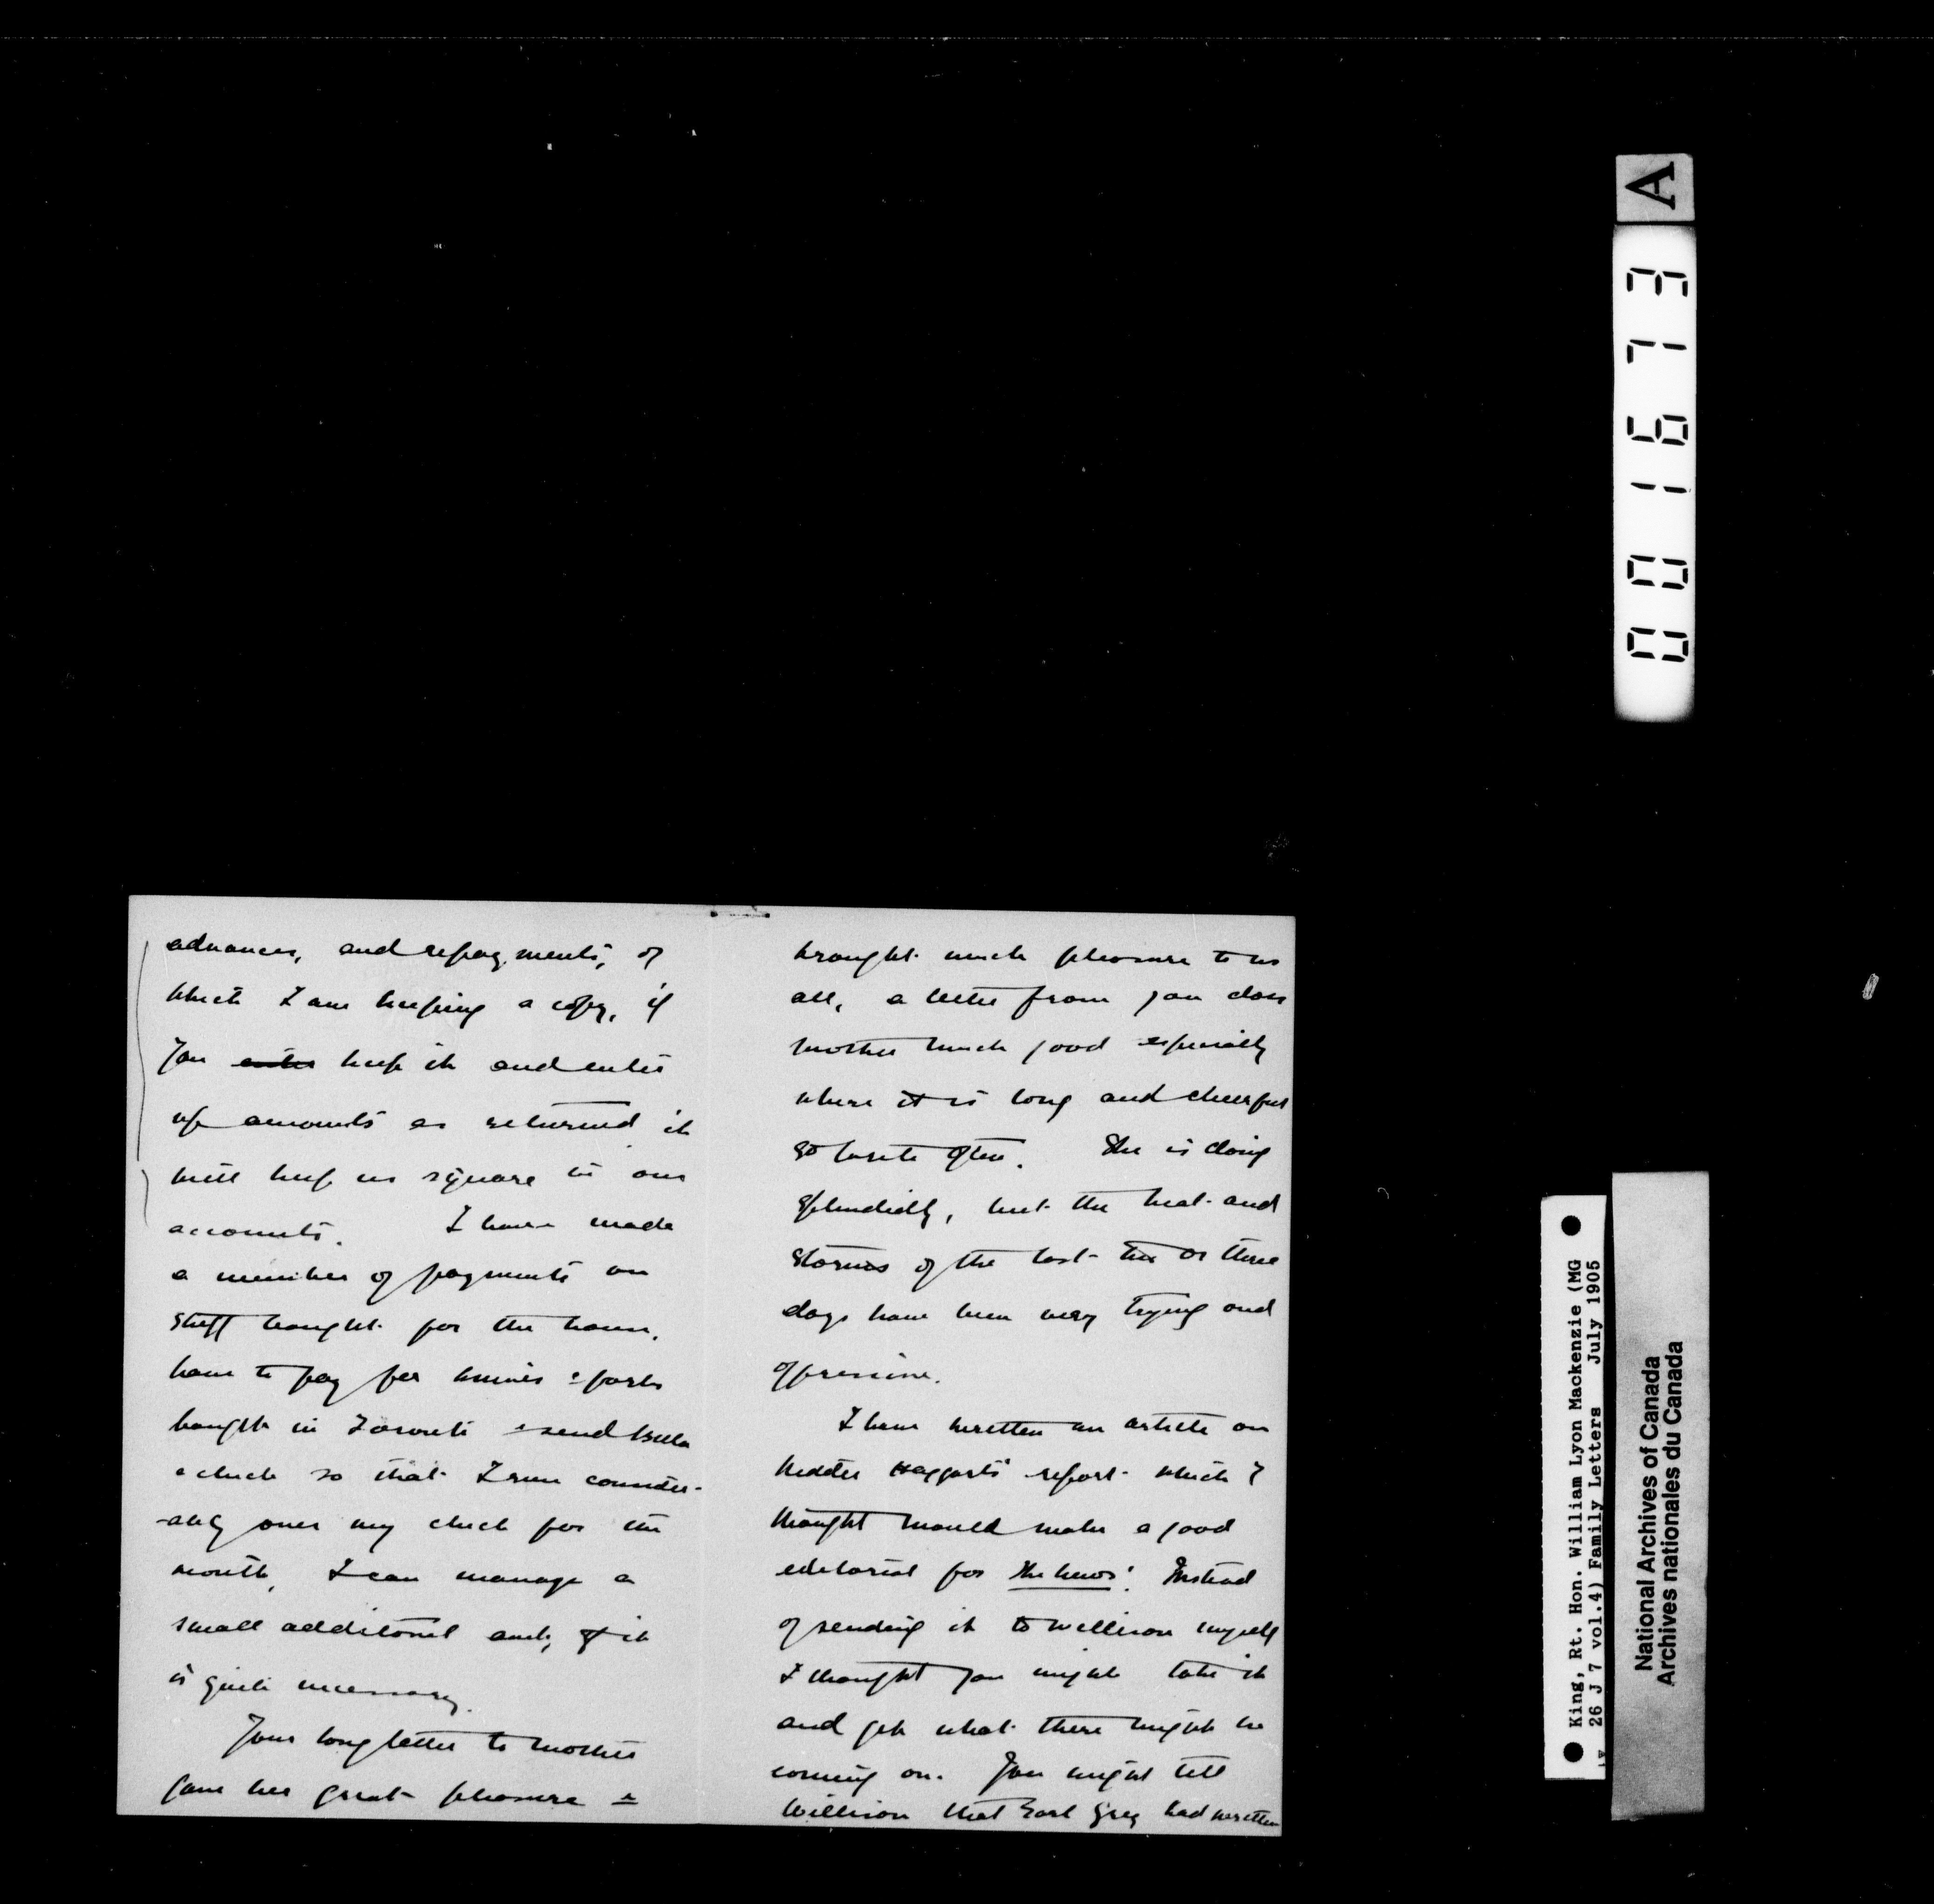 advances, and repayments, of
which I am keeping a copy, if
you enter keep it and enter
up amounts as returned it
will keep us square in our
accounts. I have made
a number of payments on
stuff bought for the house,
have to pay for knives & forks
bought in Toronto & send Bella
a check so that I run consider-
-ably over my check for the
month, I can manage a
small additional amt, if it
is quite necessary.
Your long letter to mother
gave her great pleasure &
brought much pleasure to us
all, a letter from you does
mother much good especially
where it is long and cheerful
so write often. She is doing
splendidly, but the heat and
storms of the last two or three
days have been very trying and
oppressive.
I have written an article on
Rider Haggard's report which I
thought would make a good
editorial for The News. Instead
of sending it to Willison myself
I thought you might take it
and get what there might be
coming on. You might tell
Willison that Earl Grey had written
A
001673
King, Rt. Hon. William Lyon Mackenzie (MG
26 J 7 vol.4) Family Letters July 1905
National Archives of Canada
Archives nationales du Canada